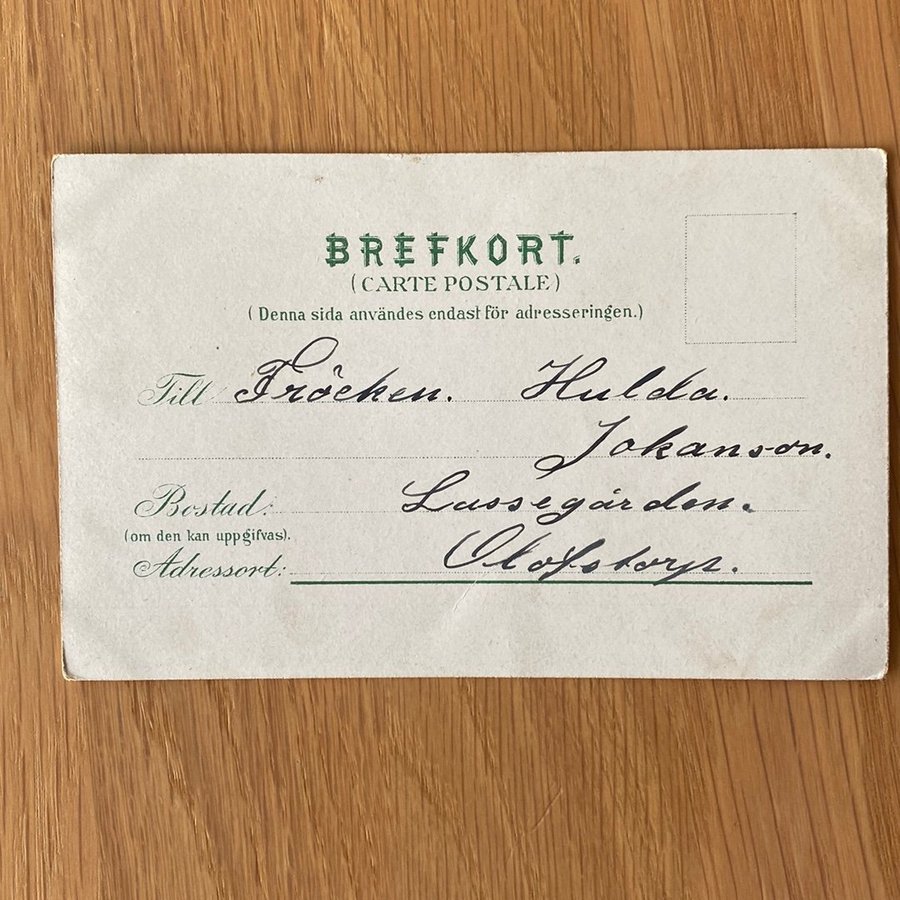 BREFKORT.
(CARTE POSTALE)
(Denna sida användes endast för adresseringen.)
Till Fröcken. Hulda.
Johanson.
Bostad: Lassegården.
(om den kan uppgifvas).
Adressort: Olofstorp.